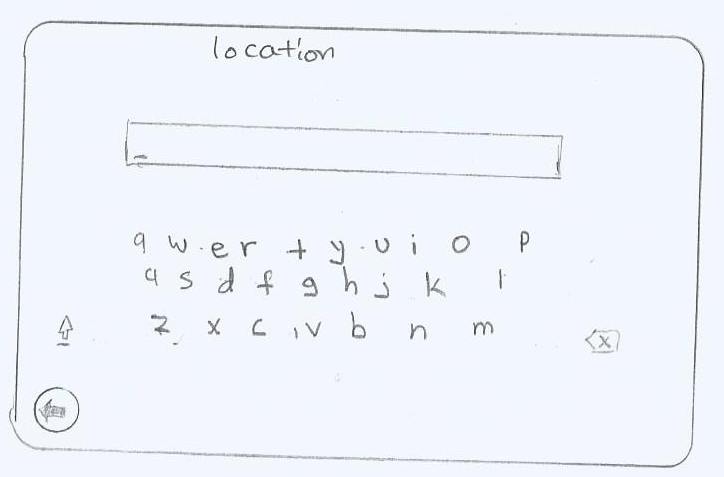 location
q w e r t y u i o p
a s d f g h j k l
z x c v b n m
x